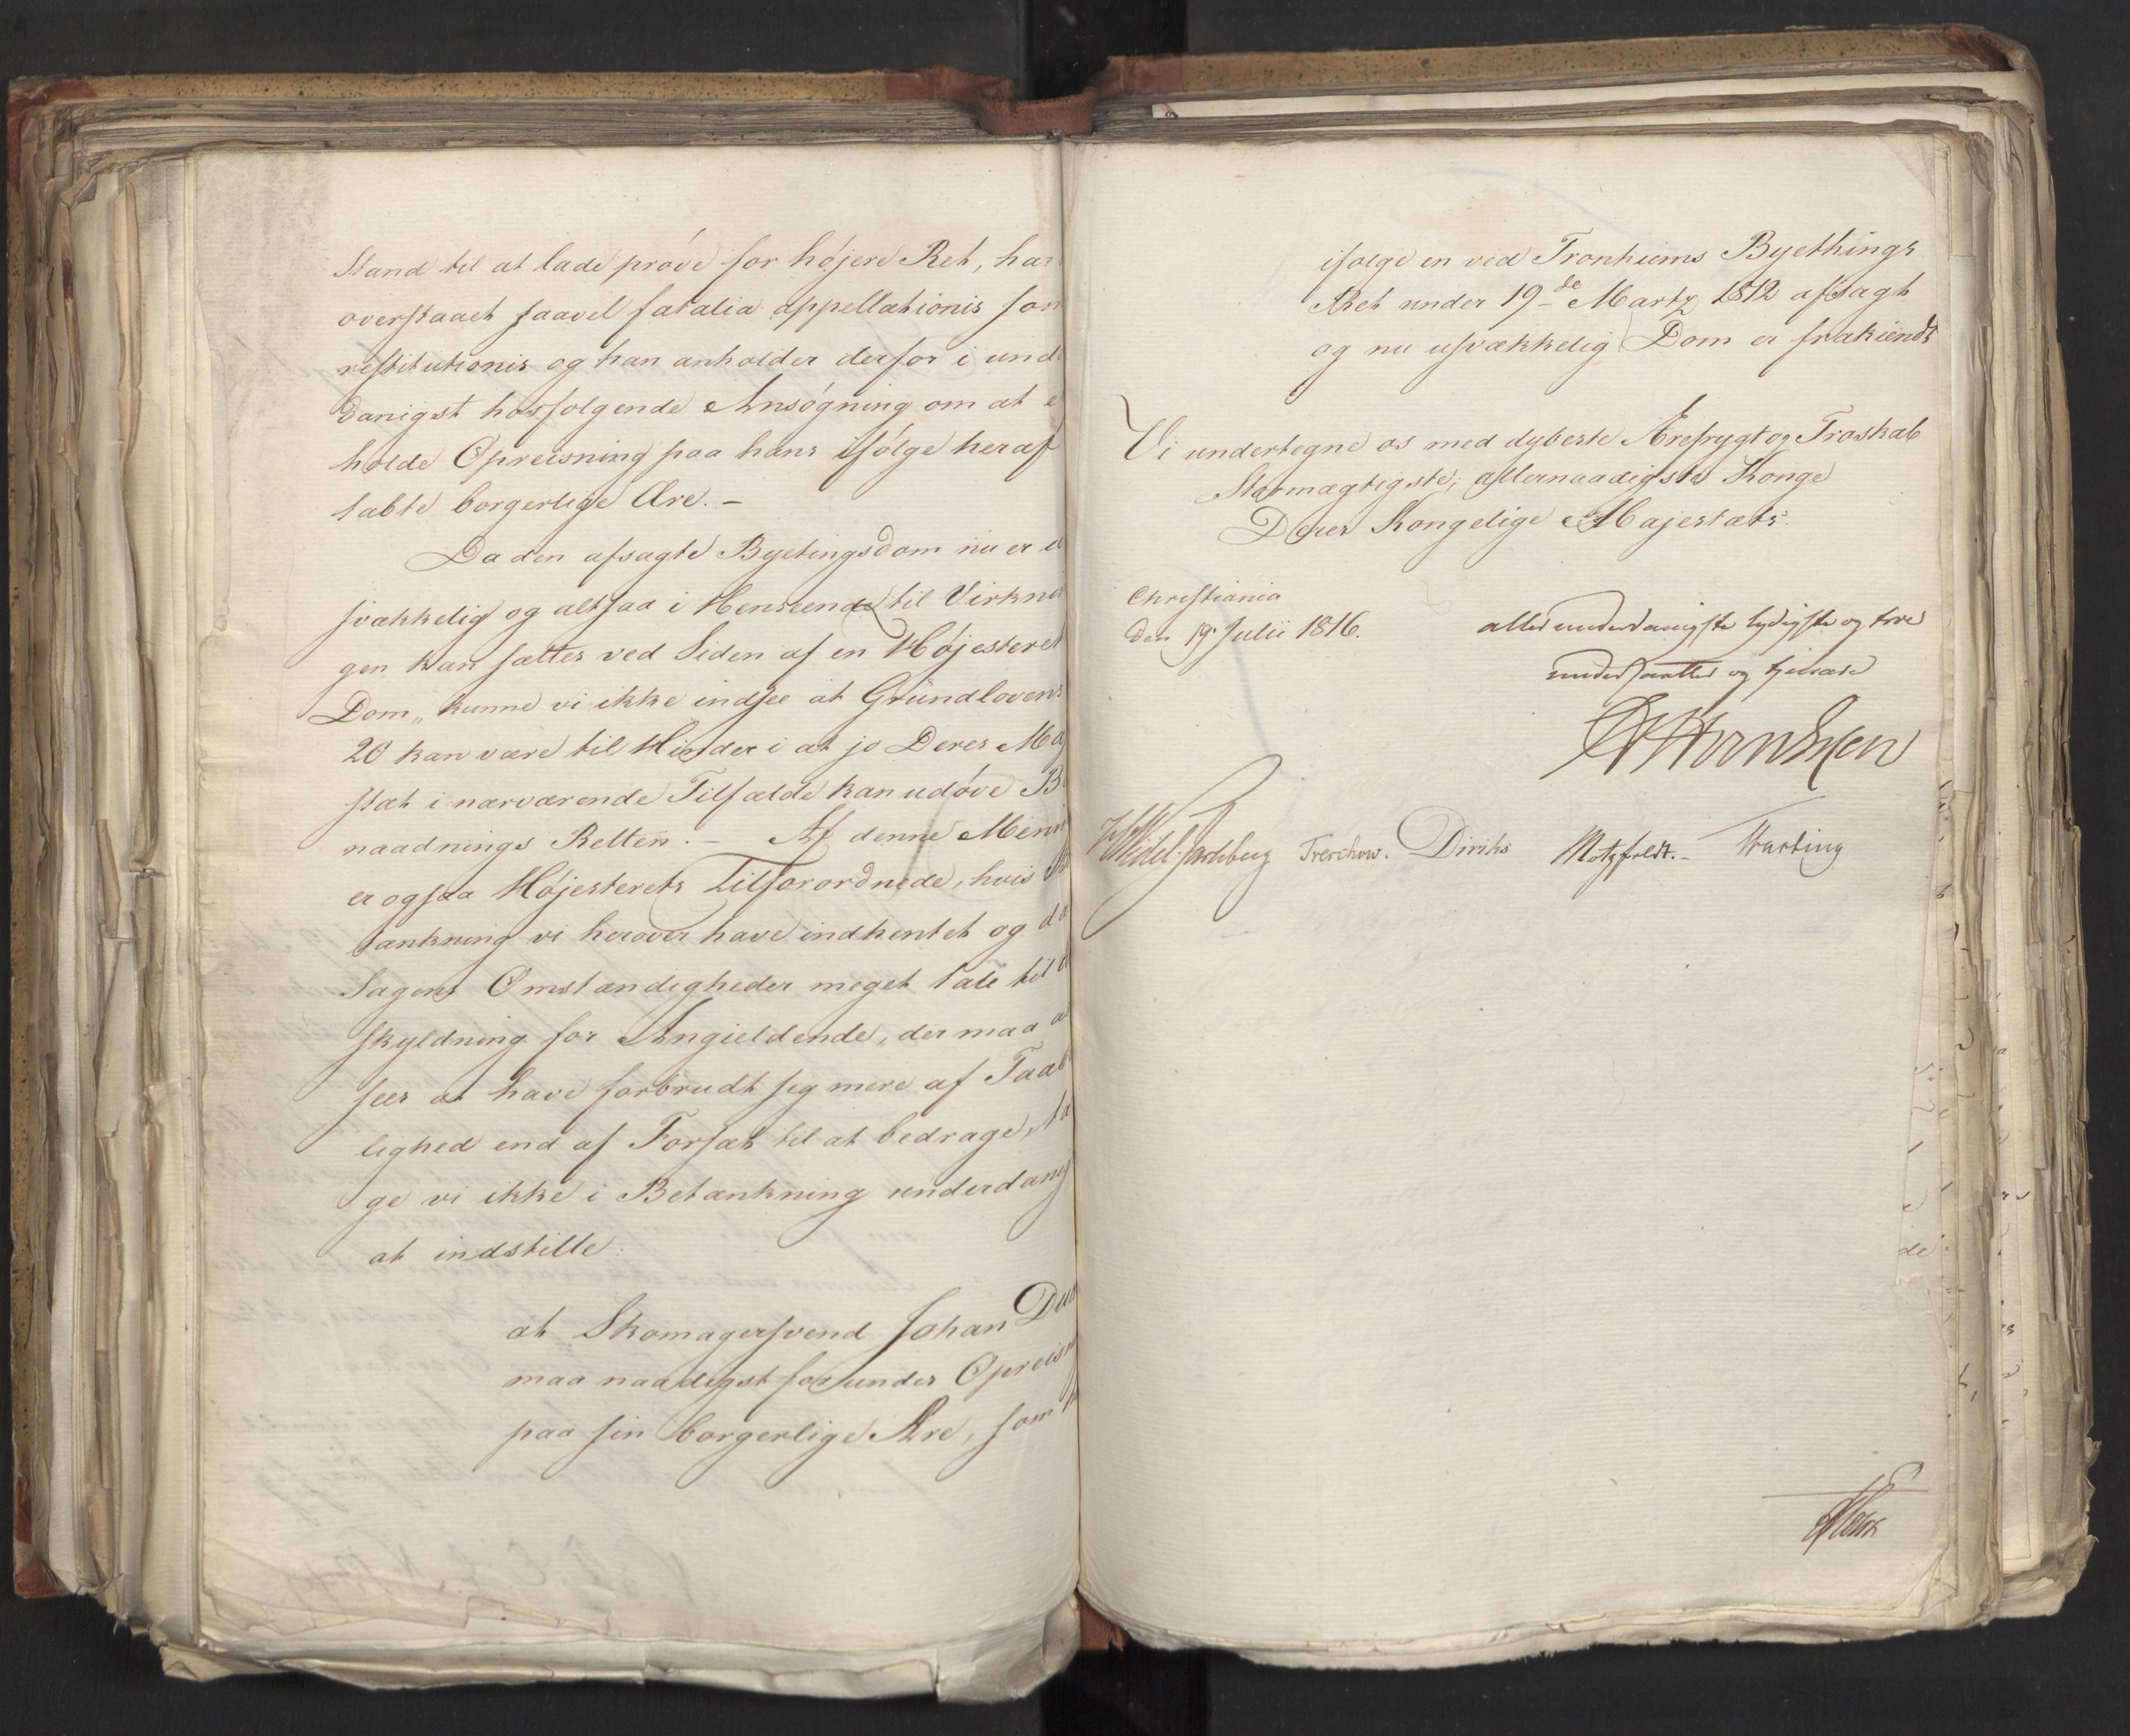 Stand til at lade prøve for højere Ret, har
overstaaet saavel fatalia appellationis som
restitutionis og han anholder derfor i und
danigst hosfølgende Ansøgning om at e
holde Opreisning paa hans ifølge heraf
tabte borgerlige Ære. –
Da den afsagte Byetingsdom nu er u
svækkelig og altsaa i Henseende til Virknin
gen kan sættes ved Siden af en Højesteret
Dom, kunne vi ikke indsee at Grundlovens
20 kan være til Hinder i at jo Deres Maj
stæt i nærværende Tilfælde kan udøve B
naadnings Retten. – Af denne Meni
er ogsaa Højesterets Tilforordnede, hvis
tænkning vi herover have indhentet og da
Sagens Omstændigheder meget tale til
skyldning for Angieldende, der maa a
sees at have forbrudt sig mere af Taab
lighed end af Forsæt til at bedrage, ta
ge vi ikke i Betænkning underdanig
at indstille:
at Skomagersvend Johan
maa naadigst forundes Opreisn
paa sin borgerlige Ære, som
ifølge en ved Tronhiems Byethings
Ret under 19de Martz 1812 afsagt
og nu usvækkelig Dom er frakiendt
Vi undertegne os med dybeste Ærefrygt og Troskab
Stormægtigste, allernaadigste Konge
Deres Kongelige Majestæts
Christiania
den 19 Julii 1816.
allerunderdanigste lydigste og troe
undersaatter og tjenere
Wedel-Jarlsberg Treschow. Diriks Motzfeldt. – Hasting